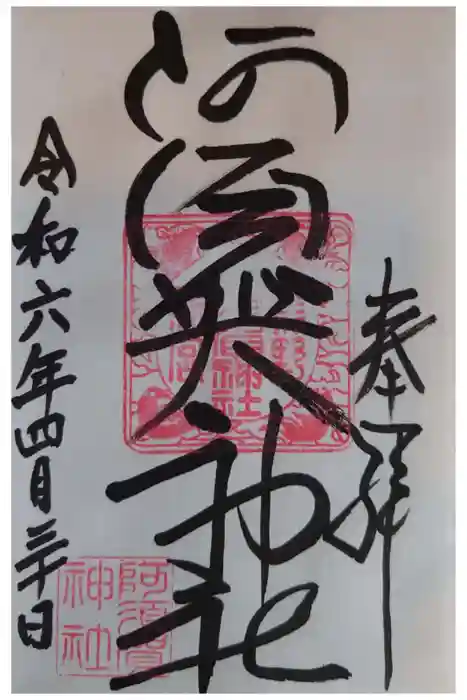 奉拝
阿須賀神社
令和六年四月三十日
熊野
阿須賀
神社